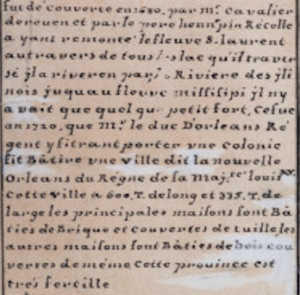 fut de couverte en 1680, par mr. Cavalier
de rouen et par le pere henn pin Récolle
ayant remonté le fleuve S. laurent
au travers de tous les lac qu'il travr
se jl ariveren par Riviere des jli
nois juquau fleuve missisipi jl ny
avait que quel qu petit fort, Ce fue
en 1720, que Mr. le duc D'orleans Ré
gent y fit rant porter une colonie
fit Bâtire une ville dit la nouvelle
Orleans du Régne de la Maj.té louis
Cette ville a 600. T. de long et 335. T. de
large les principales maisons sont Bâ
ties de Brique et couvertes de tuille, les
autres maisons sont Bâties de bois cou
vertes de même Cette province est
trés fertille